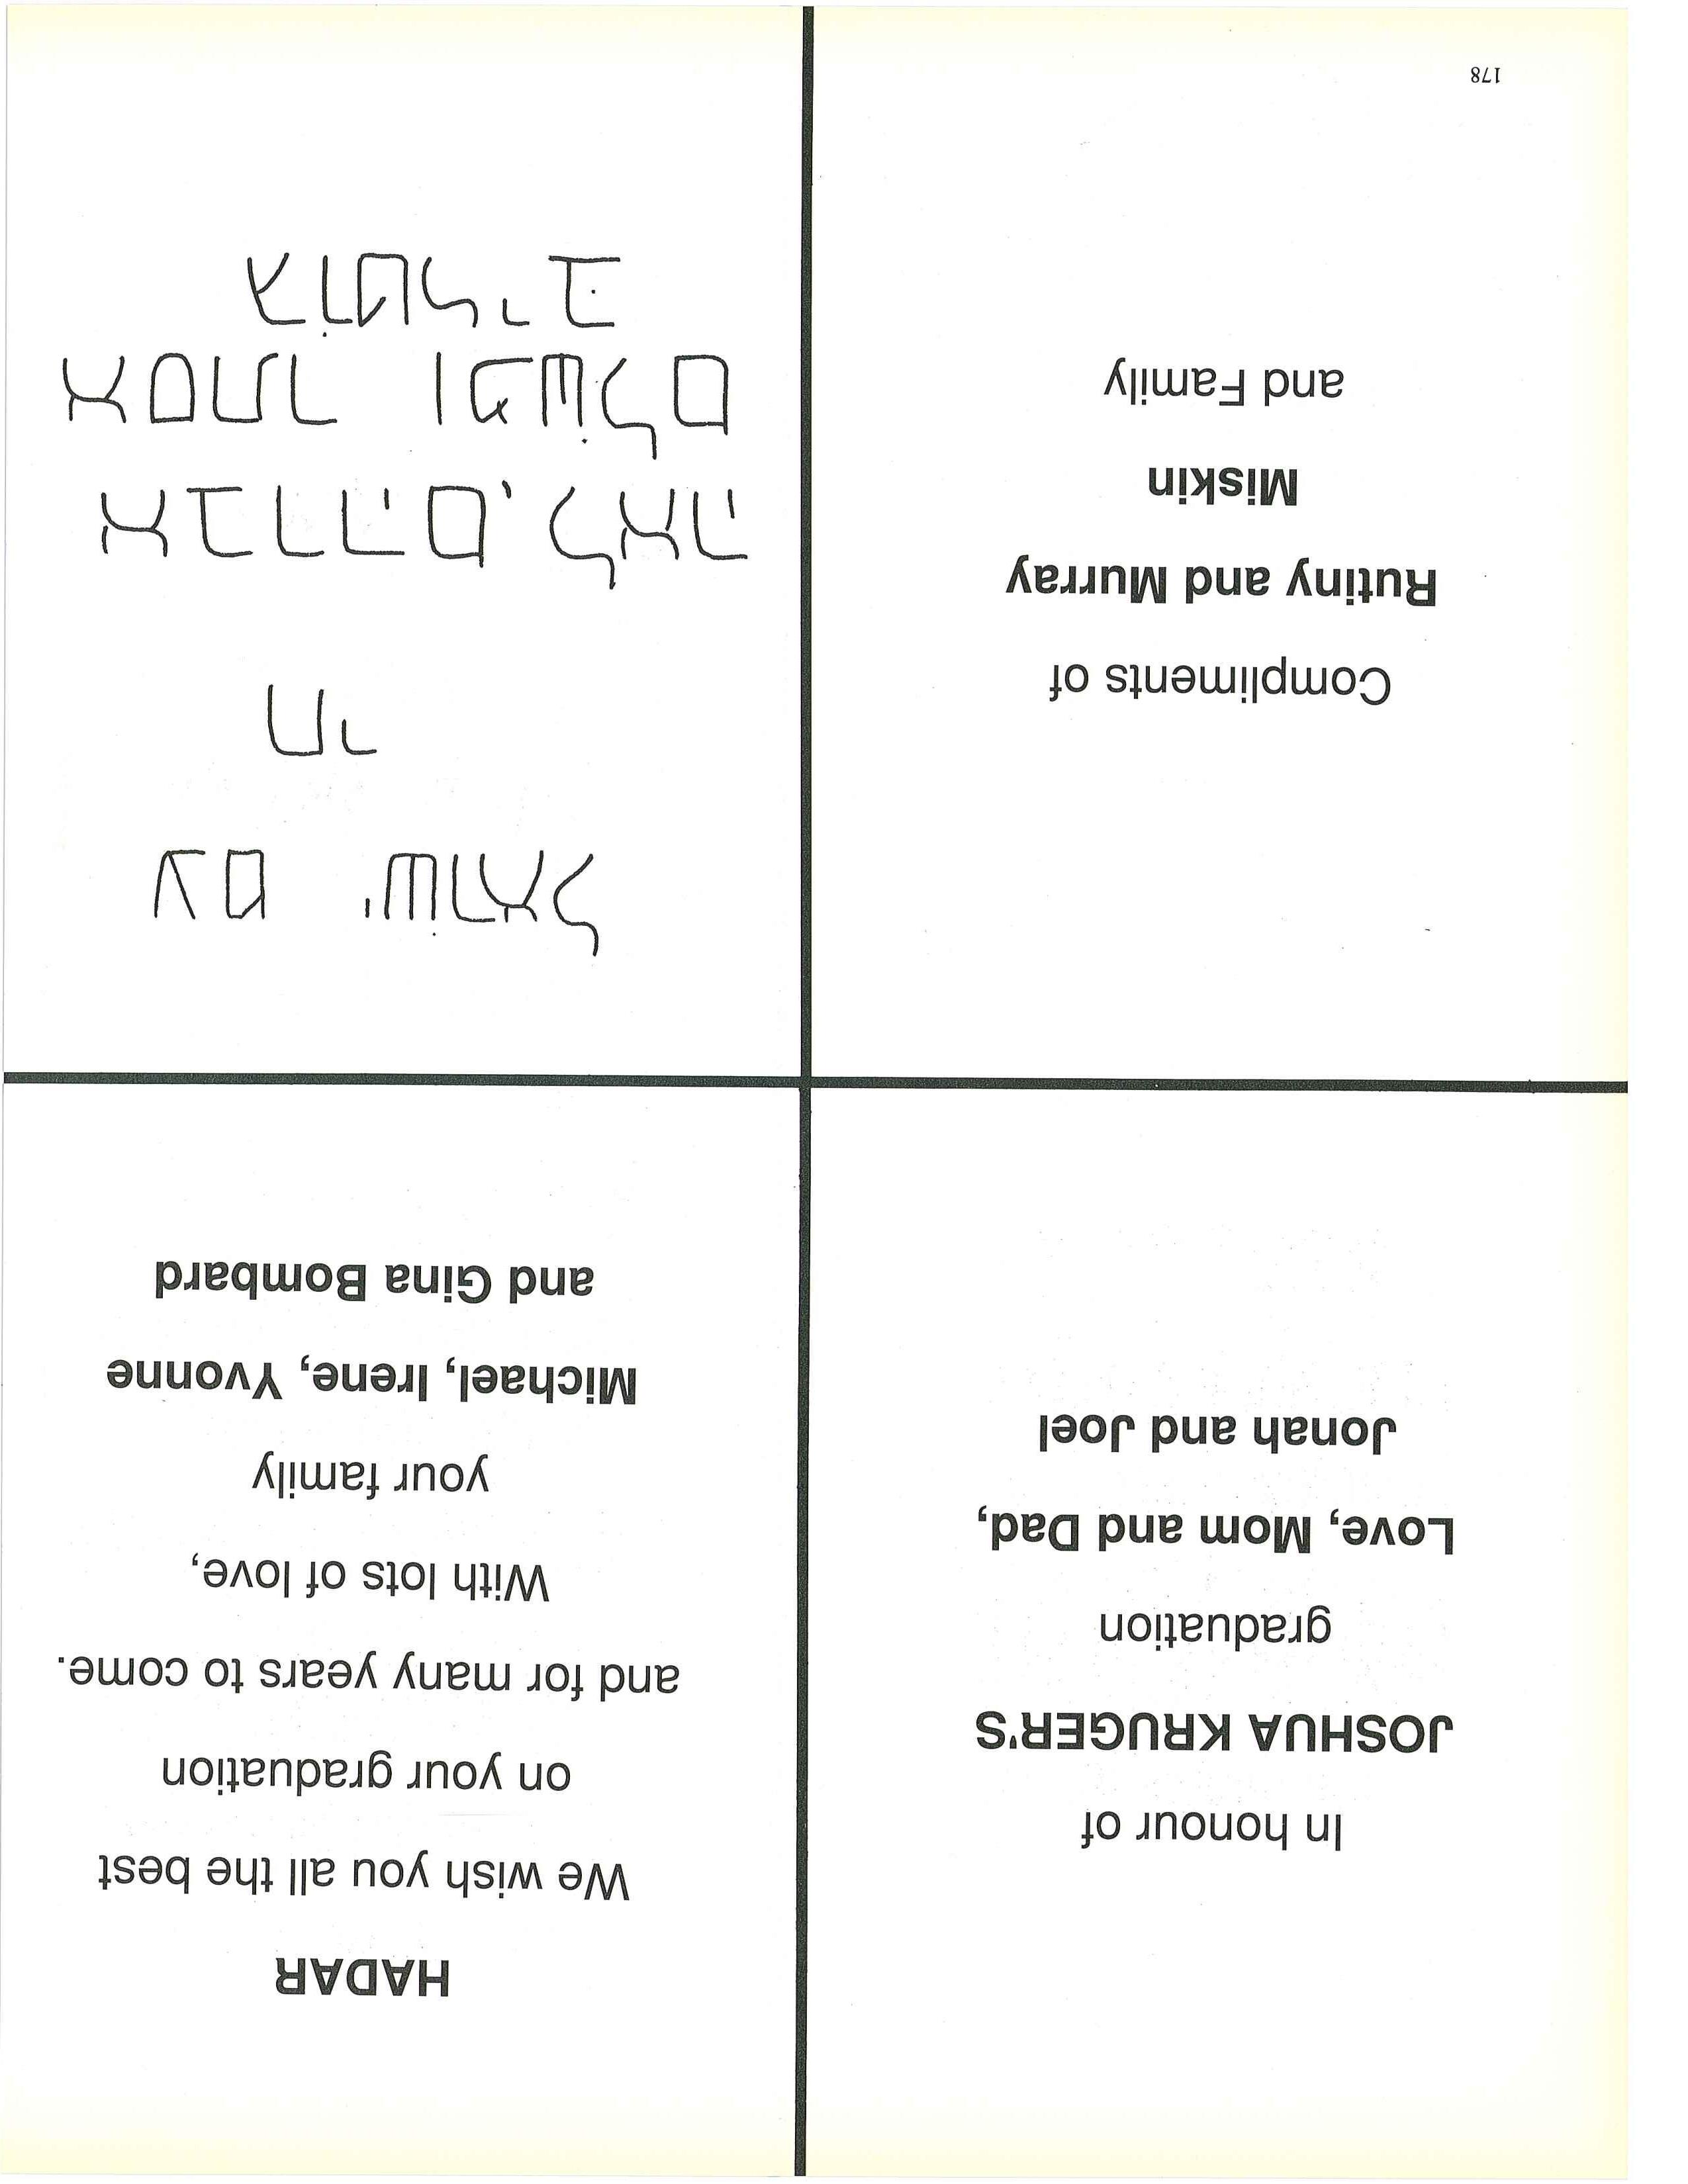 In honour of
JOSHUA KRUGER'S
graduation
Love, Mom and Dad,
Jonah and Joel
HADAR
We wish you all the best
on your graduation
and for many years to come.
With lots of love,
your family
Michael, Irene, Yvonne
and Gina Bombard
Compliments of
Rutiny and Murray
Miskin
and Family
עם ישראל
חי
אברהם, לאה
אסתר ומשלם
גוטליב
178